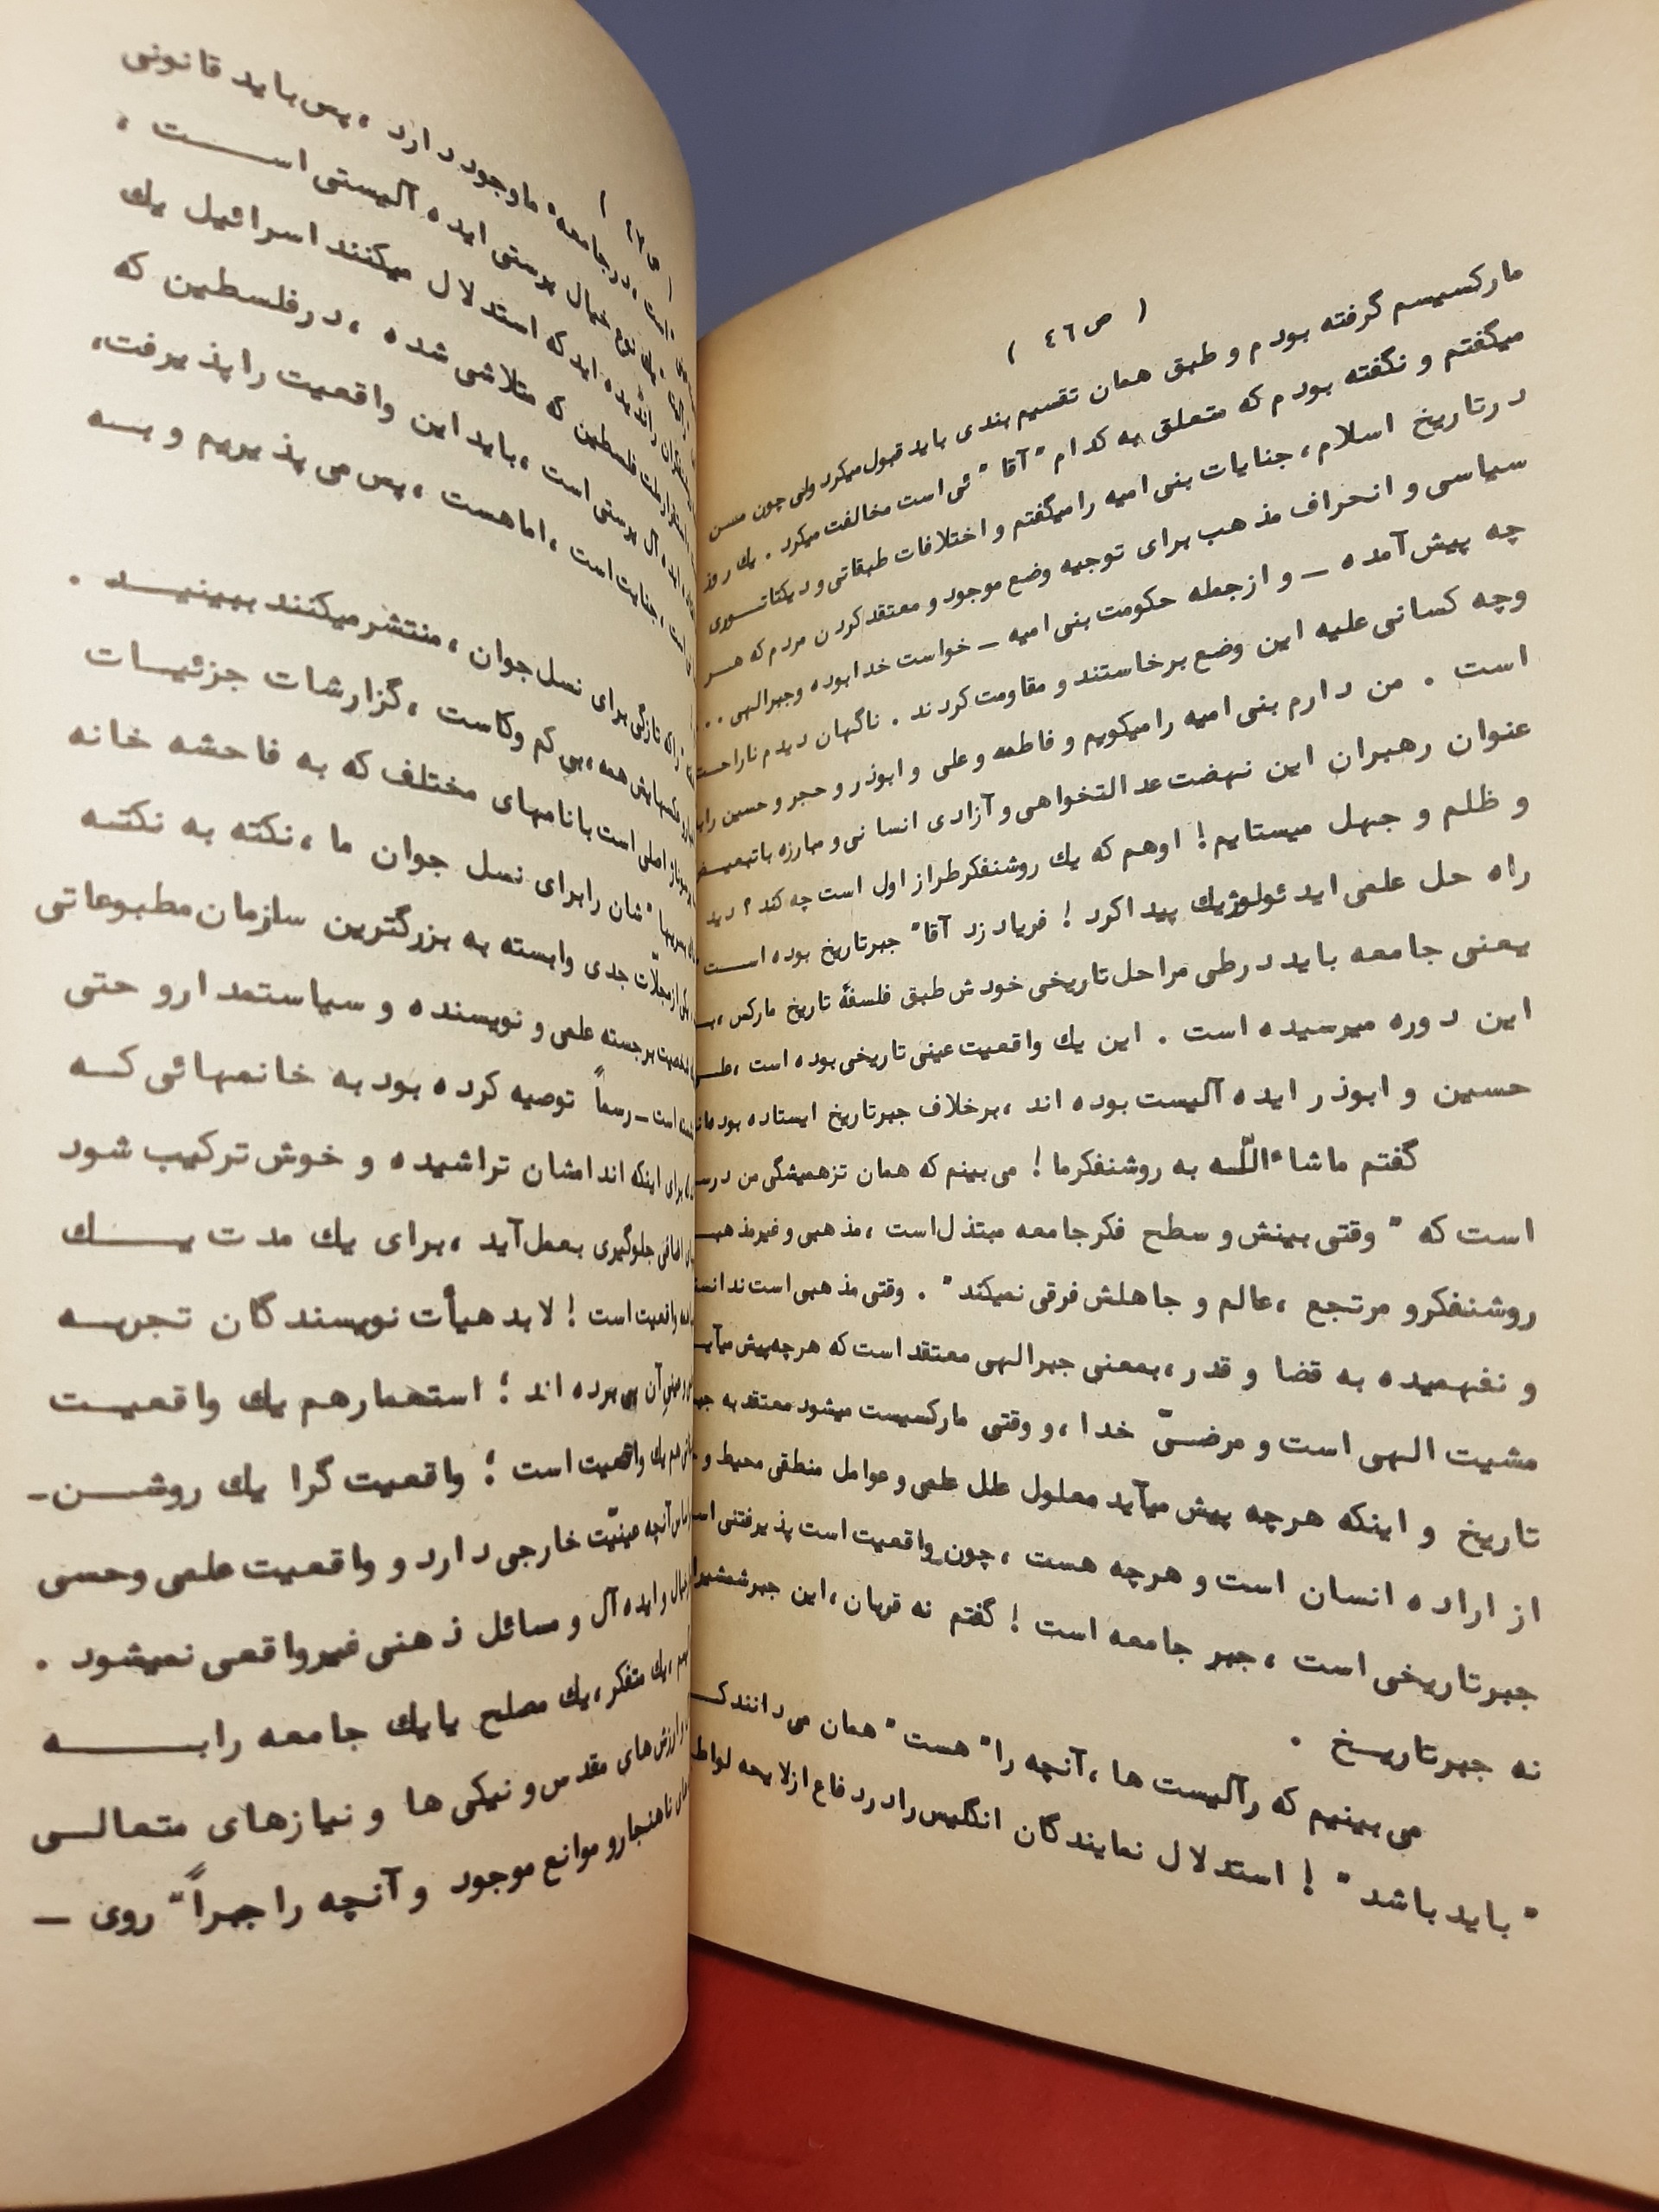 ( ص ٤٦ )
مارکسیسم گرفته بودم و طبق همان تقسیم بندی باید قبول میکرد ولی چون مسن
میگفتم و نگفته بودم که متعلق به کدام " آقا " ئی است مخالفت میکرد . یك روز
درتاریخ اسلام ، جنایات بنی امیه را میگفتم و اختلافات طبقاتی و دیکتاتوری
سیاسی و انحراف مذهب برای توجیه وضع موجود و معتقد کردن مردم که هر
چه پیش آمده ـ و ازجمله حکومت بنی امیه ـ خواست خدا بوده و جبرالهی . .
وچه کسانی علیه این وضع برخاستند و مقاومت کردند . ناگهان دیدم ناراحت
است . من دارم بنی امیه را میکوبم و فاطمه و علی و ابوذر و حجر و حسین را
عنوان رهبران این نهضت عدالتخواهی و آزادی انسانی و مبارزه با
و ظلم و جهل میستایم ! اوهم که یك روشنفکرطراز اول است چه کند ؟ دید
راه حل علمی ایدئولوژیك پیدا کرد ! فریاد زد آقا " جبرتاریخ بوده است
یعنی جامعه باید درطی مراحل تاریخی خودش طبق فلسفهٔ تاریخ مارکس ،
این دوره میرسیده است . این یك واقعیت عینی تاریخی بوده است ،
حسین و ابوذر ایده آلیست بوده اند ، برخلاف جبرتاریخ ایستاده بوده
گفتم ماشاءاللّه به روشنفکرما ! می بینم که همان تزهمیشگی من درست
است که " وقتی بینش و سطح فکر جامعه مبتذل است ، مذهبی و غیرمذ
روشنفکرو مرتجع ، عالم و جاهلش فرقی نمیکند " . وقتی مذهبی است ندانسته
و نفهمیده به قضا و قدر ، بمعنی جبرالهی معتقد است که هرچه پیش میآید
مشیت الهی است و مرضیّ خدا ، و وقتی مارکسیست میشود معتقد به جبر
تاریخ و اینکه هرچه پیش میآید معلول علل علمی و عوامل منطقی محیط و
از اراده انسان است و هرچه هست ، چون واقعیت است پذیرفتنی
جبرتاریخی است ، جبر جامعه است ! گفتم نه قربان ، این جبرشمشیر
نه جبرتاریخ .
می بینیم که رآلیست ها ، آنچه را " هست " همان می دانند ک
" باید باشد " ! استدلال نمایندگان انگلیس را دردفاع ازلایحه لواط
( ص ٤٧ )
است ، درجامعهٔ ما وجود دارد ، پس باید قانونی
نوع خیال پرستی ایده آلیستی است ،
اید که استدلال میکنند اسرائیل یك
فلسطین که متلاشی شده ، درفلسطین که
ایده آل پرستی است ، باید این واقعیت را پذیرفت ،
جنایت است ، اما هست ، پس می پذیریم و بـه
را که تازگی برای نسل جوان ، منتشر میکنند ببینید .
عکسهایش همه ، بی کم و کاست ، گزارشات جزئیات
اصلی است با نامهای مختلف که به فاحشه خانه
شان را برای نسل جوان ما ، نکته به نکته
یکی از مجلّات جدی وابسته به بزرگترین سازمان مطبوعاتی
برجسته علمی و نویسنده و سیاستمدارو حتی
است ـ رسماً توصیه کرده بود به خانمهائی کـه
برای اینکه اندامشان تراشیده و خوش ترکیب شود
اضافی جلوگیری بعمل آید ، برای یك مدت یـك
واقعیت است ! لابد هیأت نویسندگان تجربـه
آن پی برده اند ؛ استعمارهم یك واقعیت
هم یك واقعیت است ؛ واقعیت گرا یك روشن‌ـ
آنچه عینیّت خارجی دارد و واقعیت علمی و حسی
وایده آل و مسائل ذهنی غیرواقعی نمیشود .
یك متفکر ، یك مصلح یایك جامعه رابـه
ارزش های مقدس و نیکی ها و نیازهای متعالی
ناهنجارو موانع موجود و آنچه را جبراً " روی ـ